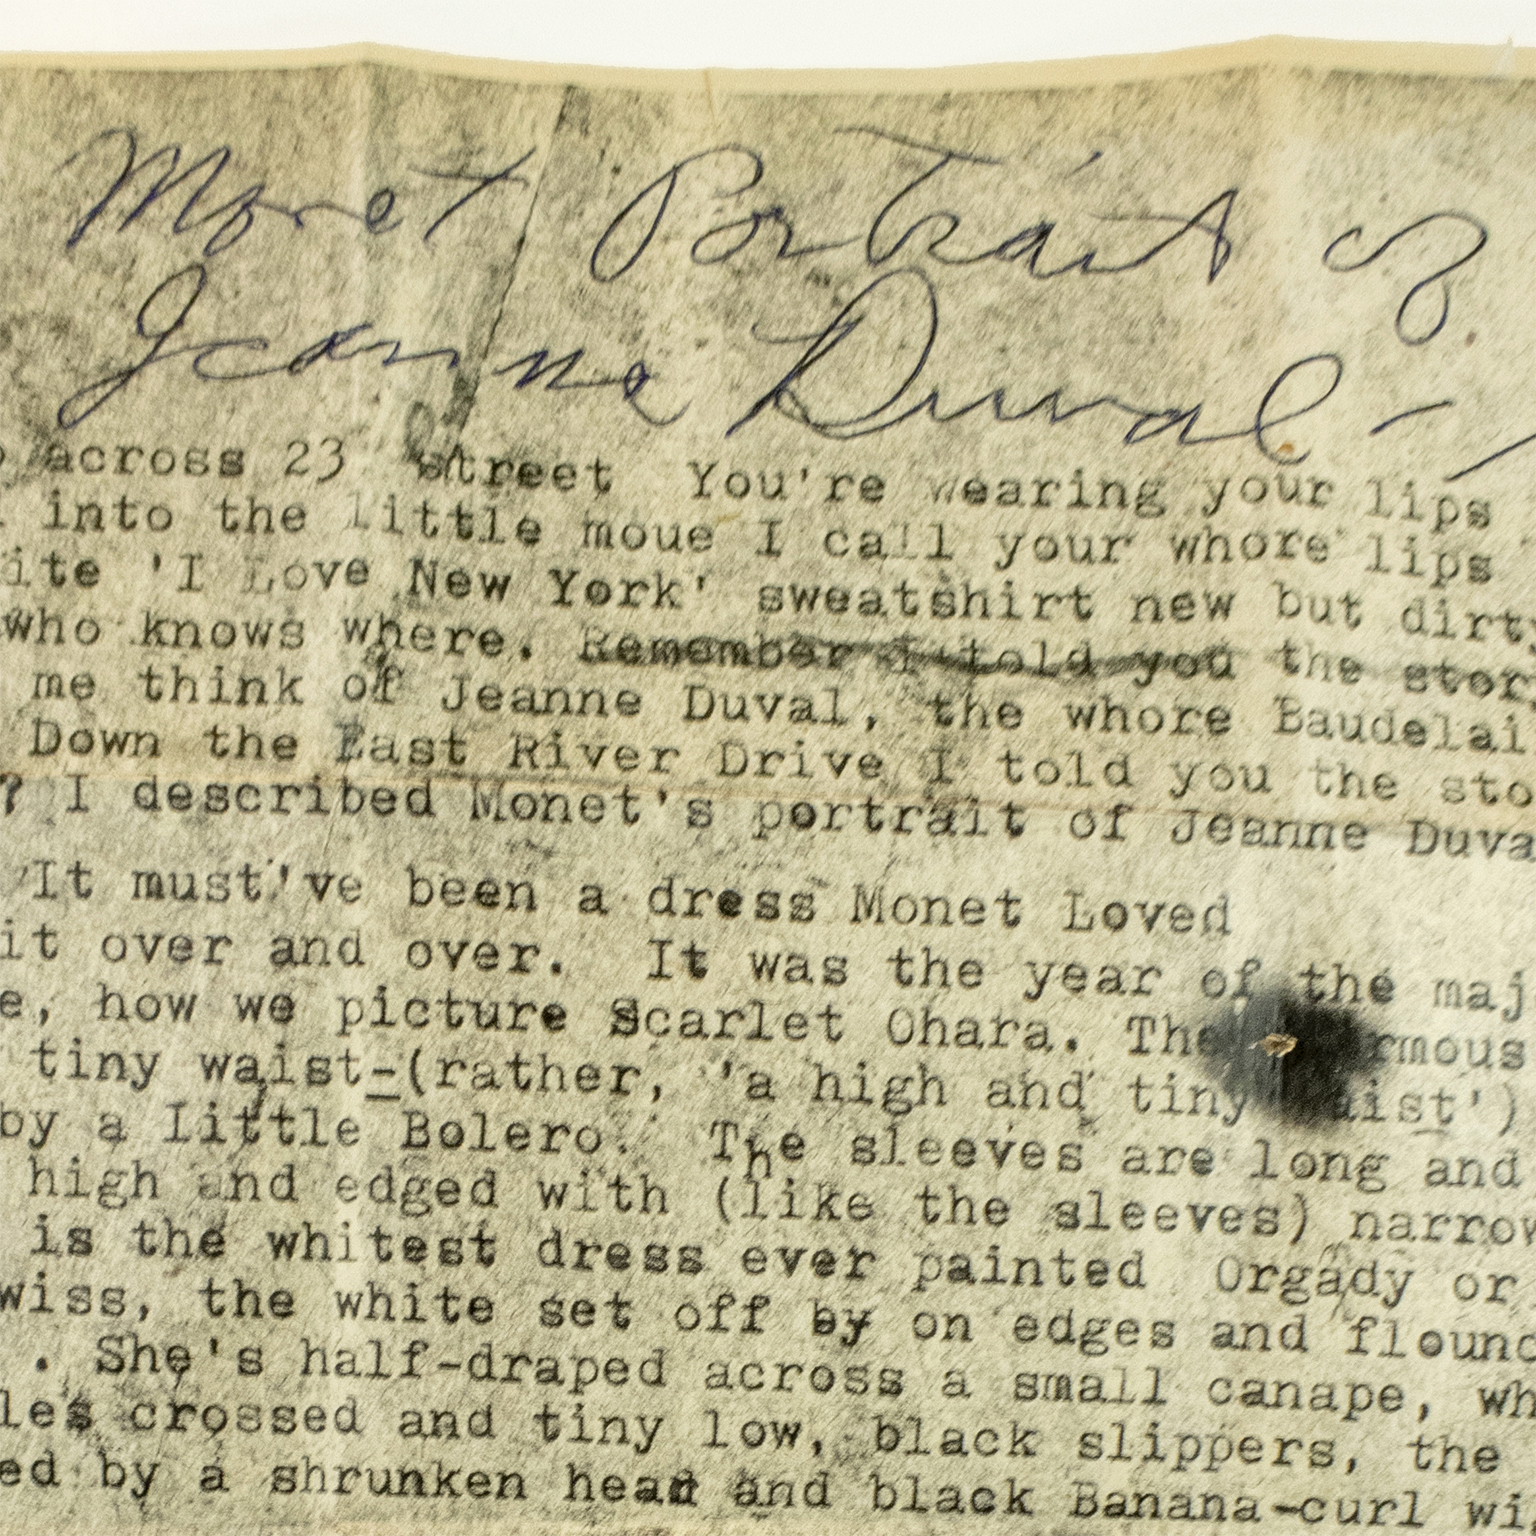 Monet Portrait of
Jeanne Duval -
across 23 street You're wearing your lips
into the little moue I call your whore lips
ite 'I Love New York' sweatshirt new but dirty
who knows where. Remember I told you the story
me think of Jeanne Duval, the whore Baudelai
Down the East River Drive I told you the sto
? I described Monet's portrait of Jeanne Duva
It must've been a dress Monet Loved
it over and over. It was the year of the maj
e, how we picture Scarlet Ohara. The rmous
tiny waist-(rather, 'a high and tiny aist')
by a Little Bolero. The sleeves are long and
high and edged with (like the sleeves) narrow
is the whitest dress ever painted Orgady or
wiss, the white set off by on edges and flounc
. She's half-draped across a small canape, wh
les crossed and tiny low, black slippers, the
ed by a shrunken head and black Banana-curl wi